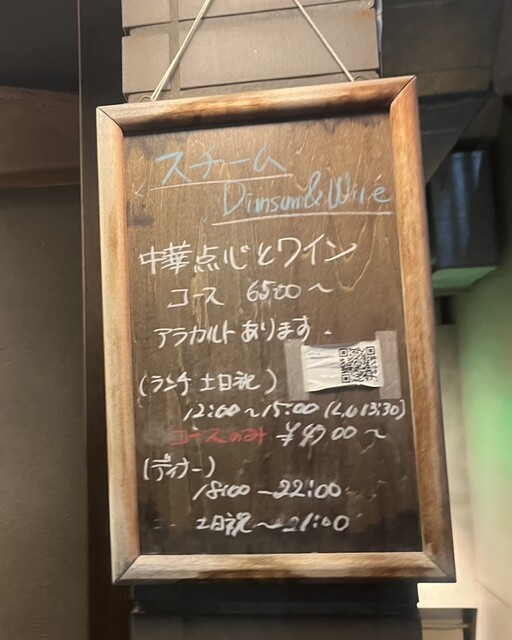 スチーム
Dimsum&Wine
中華点心とワイン
コース 6500～
アラカルトあります.
(ランチ 土日祝)
12:00～15:00 (L.O 13:30)
コースのみ ¥4900～
(ディナー)
18:00-22:00
土日祝～21:00